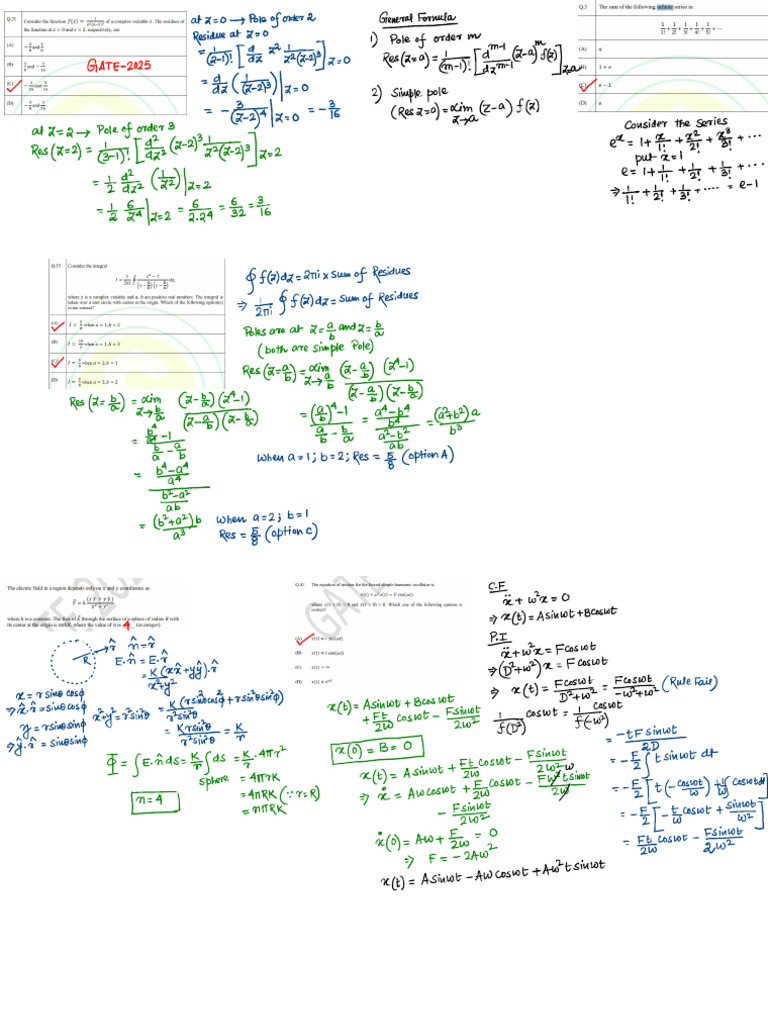 Q.21 Consider the function f(z) = 1/(z²(z−2)³) of a complex variable z. The residues of
the function at z = 0 and z = 2, respectively, are
(A)
(B)
(C)
(D)
GATE-2025
at z=0 → Pole of order 2
Residue at z=0
= 1/(2-1)! [d/dz z² 1/(z²(z-2)³)] z=0
= d/dz (1/(z-2)³)| z=0
= -3/(z-2)⁴ | z=0 = -3/16
General Formula
1) Pole of order m
Res(z=a) = 1/(m-1)! [d^(m-1)/dz^(m-1) (z-a)^m f(z)] z=a
2) Simple pole
(Res z=a) = lim z→a (z-a) f(z)
Q.3 The sum of the following infinite series is:
1/1! + 1/2! + 1/3! + 1/4! + 1/5! + ⋯
(A) π
(B) 1 + e
(C) e − 1
(D) e
Consider the series
eˣ = 1 + x/1! + x²/2! + x³/3! + ...
put x=1
e = 1 + 1/1! + 1/2! + 1/3! + ...
⇒ 1/1! + 1/2! + 1/3! + .... = e-1
at z=2 → Pole of order 3
Res(z=2) = 1/(3-1)! [d²/dz² (z-2)³ 1/(z²(z-2)³)] z=2
= 1/2 d²/dz² (1/z²)| z=2
= 1/2 6/z⁴ | z=2 = 6/2.24 = 6/32 = 3/16
Consider the integral
I = 1/2πi ∮ (z⁴ − 1)/((z − a/b)(z − b/a)) dz,
where z is a complex variable and a, b are positive real numbers. The integral is
taken over a unit circle with center at the origin. Which of the following option(s)
is/are correct?
(A) I = 5/8 when a = 1, b = 2
(B)
(C) I = 5/8 when a = 2, b = 1
(D)
∮ f(z)dz = 2πi × Sum of Residues
⇒ 1/2πi ∮ f(z)dz = Sum of Residues
Poles are at z = a/b and z = b/a
(both are simple Pole)
Res(z = a/b) = lim z→a/b (z - a/b)(z⁴-1)/((z - a/b)(z - b/a))
= ((a/b)⁴ - 1)/(a/b - b/a) = ((a⁴-b⁴)/b⁴)/((a²-b²)/ab) = (a²+b²)a/b³
when a=1; b=2; Res = 5/8 (option A)
Res(z = b/a) = lim z→b/a (z - b/a)(z⁴-1)/((z - a/b)(z - b/a))
= (b⁴/a⁴ - 1)/(b/a - a/b)
= ((b⁴-a⁴)/a⁴)/((b²-a²)/ab)
= (b²+a²)b/a³
when a=2; b=1
Res = 5/8 (option C)
The electric field in a region depends only on x and y coordinates as
E = k (x x̂ + y ŷ)/(x² + y²),
where k is a constant. The flux of E through the surface of a sphere of radius R with
its center at the origin is nπRk, where the value of n is 4 (in integer).
R
r̂
n̂ = r̂
E·n̂ = E·r̂
= K(x x̂ + y ŷ)·r̂/(x²+y²)
x = r sinθ cosφ
⇒ x̂·r̂ = sinθ cosφ
y = r sinθ sinφ
ŷ·r̂ = sinθ sinφ
x²+y² = r² sin²θ
= K(r sin²θ cos²φ + r sin²θ sin²φ)/(r² sin²θ)
= K r sin²θ/(r² sin²θ) = K/r
Φ = ∫ E·n̂ ds = K/r ∫ ds = K/r · 4πr²
sphere = 4πrK
= 4πRK (∵ r=R)
= nπRK
n = 4
Q.41 The equation of motion for the forced simple harmonic oscillator is
ẍ(t) + ω²x(t) = F cos(ωt)
(A) x(t) ∝ t sin(ωt)
(B) x(t) ∝ t cos(ωt)
(C) x(t) = ∞
(D)
C.F
ẍ + ω²x = 0
⇒ x(t) = A sinωt + B cosωt
P.I
ẍ + ω²x = F cosωt
⇒ (D²+ω²) x = F cosωt
⇒ x(t) = F cosωt/(D²+ω²) = F cosωt/(-ω²+ω²) (Rule Fail)
1/f(D²) cosωt = cosωt/f(-ω²)
= -tF sinωt/2D
= -F/2 ∫ t sinωt dt
= -F/2 [t(-cosωt/ω) + 1/ω ∫cosωt dt]
= -F/2 [-t/ω cosωt + sinωt/ω²]
= Ft/2ω cosωt - F sinωt/2ω²
x(t) = A sinωt + B cosωt
+ Ft/2ω cosωt - F sinωt/2ω²
x(0) = B = 0
x(t) = A sinωt + Ft/2ω cosωt - F sinωt/2ω²
⇒ ẋ = Aω cosωt + F/2ω cosωt - Fω t sinωt/2ω
- F sinωt/2ω²
ẋ(0) = Aω + F/2ω = 0
⇒ F = -2Aω²
x(t) = A sinωt - Aω cosωt + Aω² t sinωt